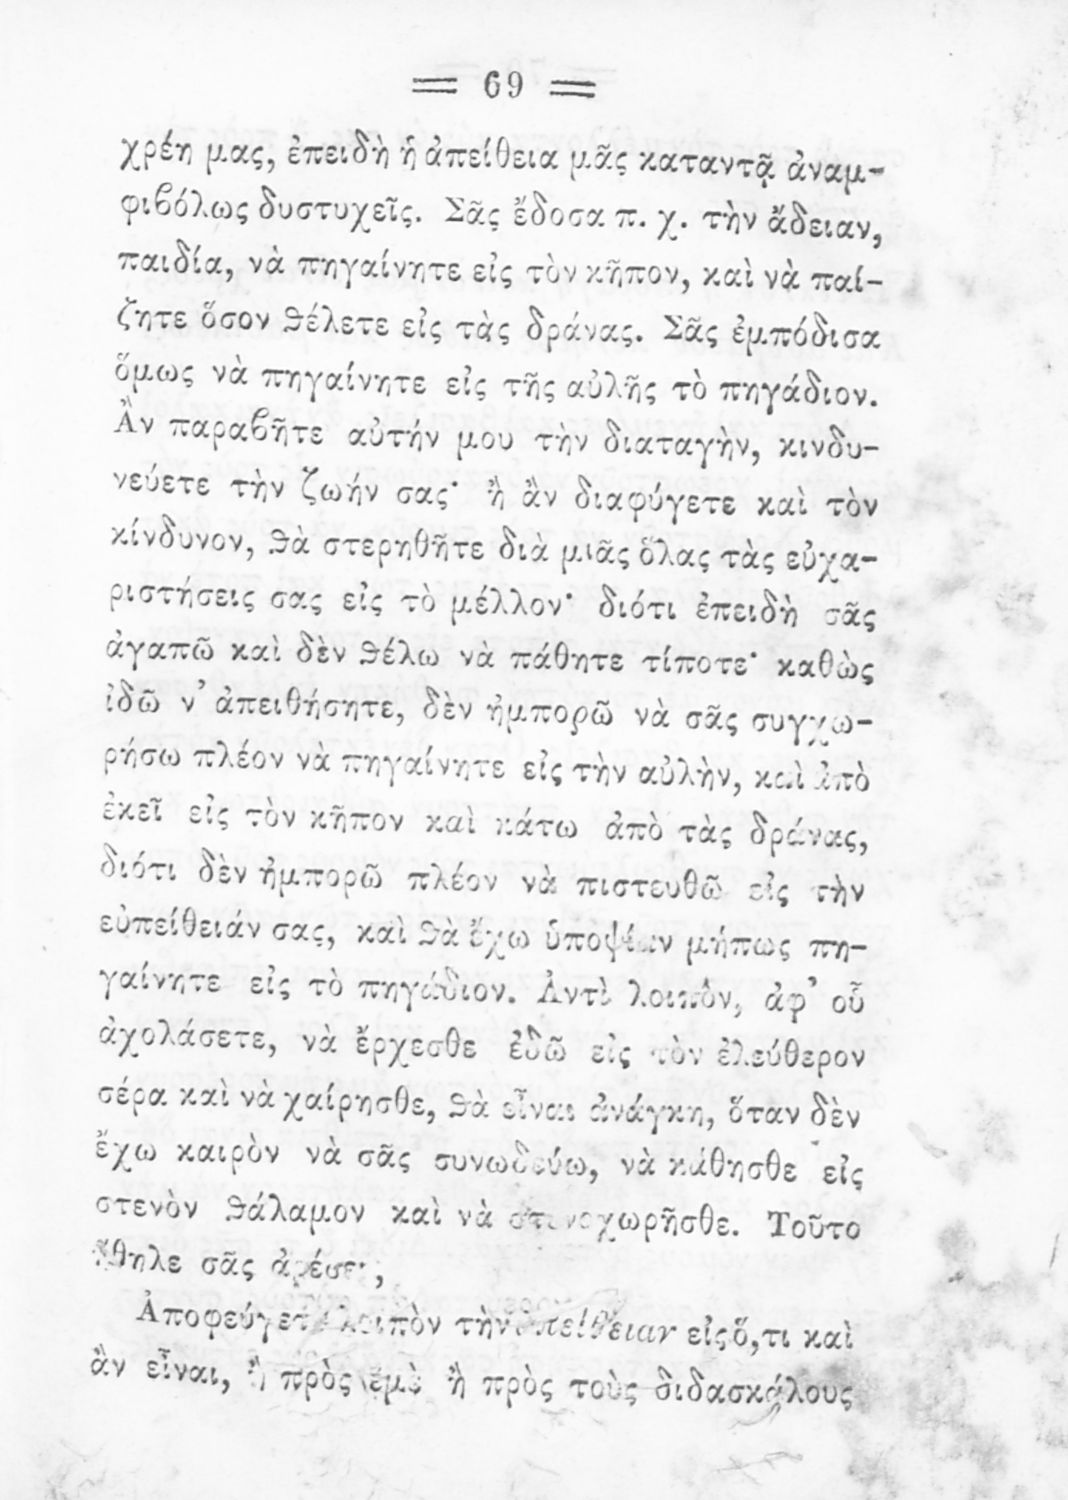 = 69 =
χρέη μας, ἐπειδὴ ἡ ἀπείθεια μᾶς καταντᾷ ἀναμ-
φιβόλως δυστυχεῖς. Σᾶς ἔδοσα π. χ. τὴν ἄδειαν,
παιδία, νὰ πηγαίνητε εἰς τὸν κῆπον, καὶ νὰ παί-
ζητε ὅσον θέλετε εἰς τὰς δράνας. Σᾶς ἐμπόδισα
ὅμως νὰ πηγαίνητε εἰς τῆς αὐλῆς τὸ πηγάδιον.
Ἂν παραβῆτε αὐτήν μου τὴν διαταγὴν, κινδυ-
νεύετε τὴν ζωήν σας· ἢ ἂν διαφύγετε καὶ τὸν
κίνδυνον, θὰ στερηθῆτε διὰ μιᾶς ὅλας τὰς εὐχα-
ριστήσεις σας εἰς τὸ μέλλον· διότι ἐπειδὴ σᾶς
ἀγαπῶ καὶ δὲν θέλω νὰ πάθητε τίποτε· καθὼς
ἰδῶ ν’ ἀπειθήσητε, δὲν ἠμπορῶ νὰ σᾶς συγχω-
ρήσω πλέον νὰ πηγαίνητε εἰς τὴν αὐλὴν, καὶ ἀπὸ
ἐκεῖ εἰς τὸν κῆπον καὶ κάτω ἀπὸ τὰς δράνας,
διότι δὲν ἠμπορῶ πλέον νὰ πιστευθῶ εἰς τὴν
εὐπείθειάν σας, καὶ θὰ ἔχω ὑποψίαν μήπως πη-
γαίνητε εἰς τὸ πηγάδιον. Ἀντὶ λοιπὸν, ἀφ’ οὗ
ἀχολάσετε, νὰ ἔρχεσθε ἐδῶ εἰς τὸν ἐλεύθερον
σέρα καὶ νὰ χαίρησθε, θὰ εἶναι ἀνάγκη, ὅταν δὲν
ἔχω καιρὸν νὰ σᾶς συνωδεύω, νὰ κάθησθε εἰς
στενὸν θάλαμον καὶ νὰ στενοχωρῆσθε. Τοῦτο
ἤθηλε σᾶς ἀρέσει;
Ἀποφεύγετε λοιπὸν τὴν ἀπείθειαν εἰς ὅ,τι καὶ
ἂν εἶναι, ἢ πρὸς ἐμὲ ἢ πρὸς τοὺς διδασκάλους